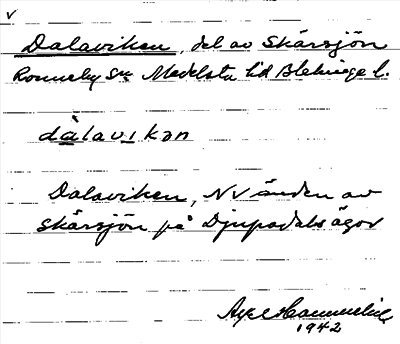 v
Dalaviken, del av Skärsjön
Ronneby Sn Medelsta hd Blekinge l.
dàlavikən
Dalaviken, NV änden av
Skärsjön på Djupadals ägor
Axel
1942